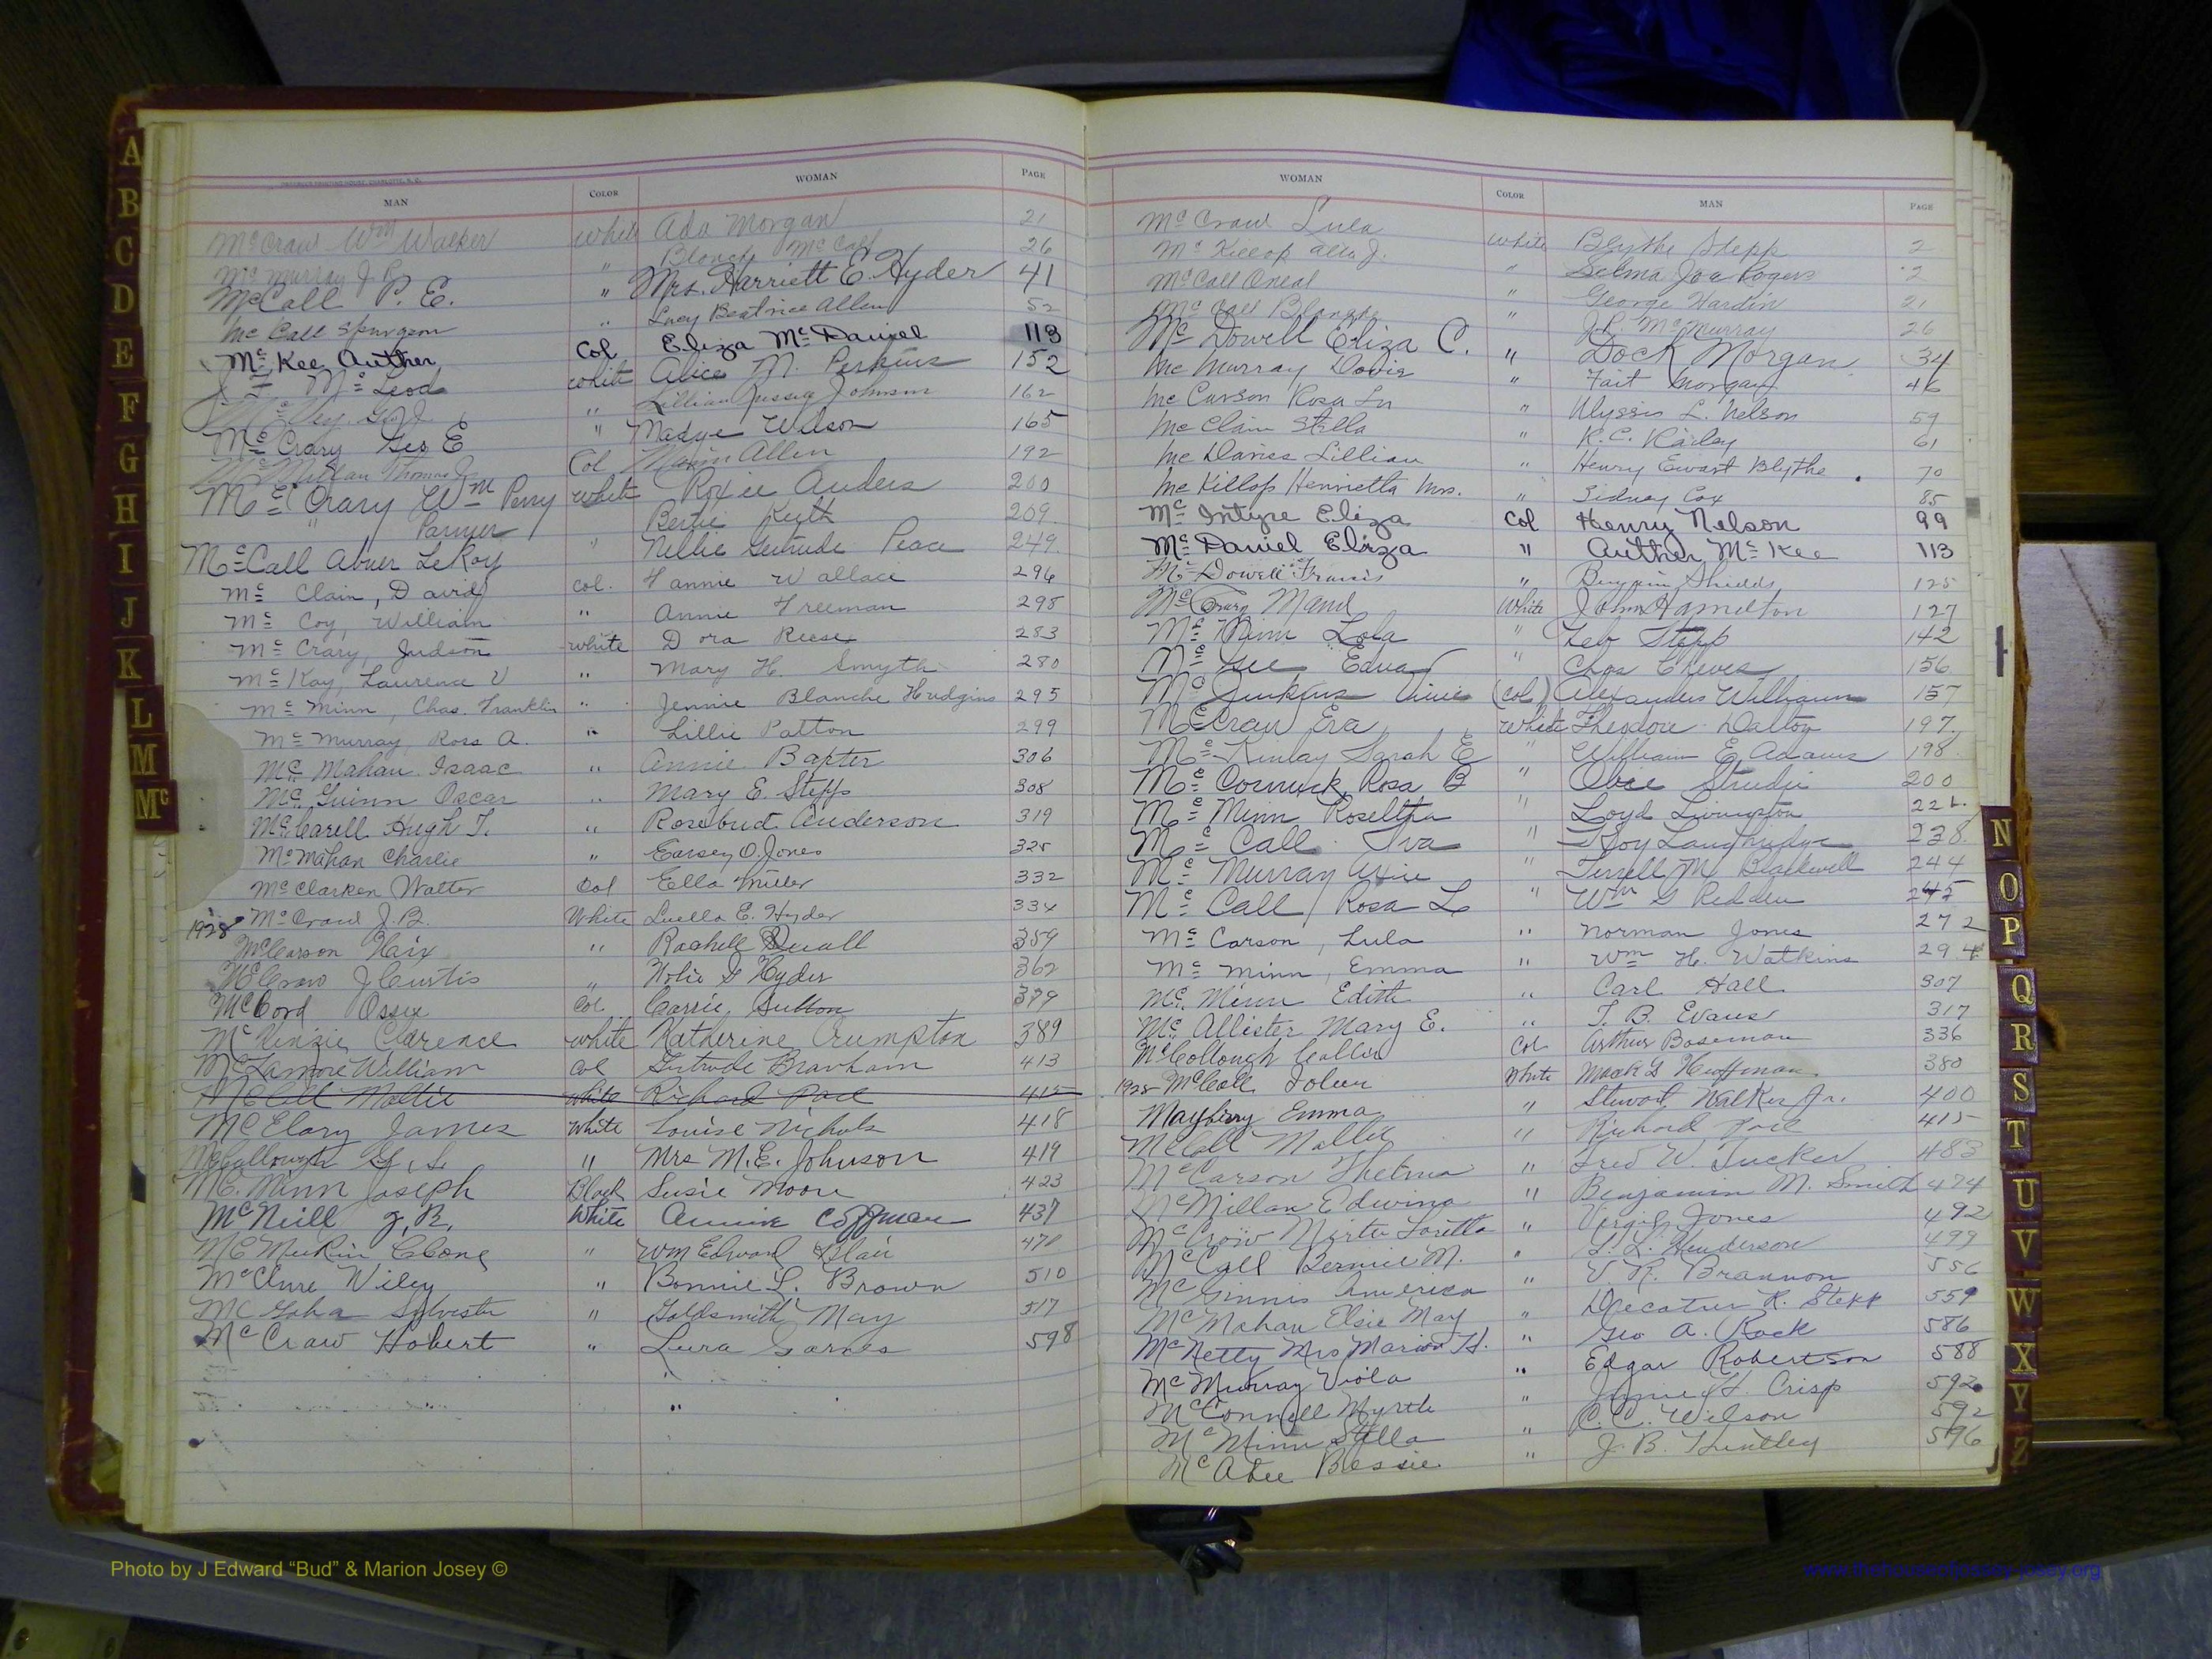 A
B
C
D
E
F
G
H
I
J
K
L
M
Mc
MAN COLOR WOMAN PAGE
McCraw Wm Walker White Ada Morgan 21
McMurray J. P. " Blanch McCall 26
McCall P. E. " Mrs. Harriett E. Hyder 41
McCall Spurgeon " Lucy Beatrice Allen 52
McKee Auther Col Eliza McDaniel 113
McLeod White Alice M. Perkins 152
" Lillian Johnson 162
McCrary Geo E " Madge Wilson 165
McMillan Thomas Col Allen 192
McCrary Wm Perry White Roxie Anders 200
" " Bertie Keith 209
McCall Abner LeRoy " Nellie Gertrude Peace 249
Mc Clain, David Col. Fannie Wallace 296
Mc Coy, William " Annie Freeman 298
Mc Crary, Judson White Dora Reese 283
Mc Kay, Laurence V " Mary H. Smyth 280
Mc Minn, Chas. Franklin " Jennie Blanche Hudgins 295
Mc Murray, Ross A. " Lillie Patton 299
Mc Mahan Isaac " Annie Baxter 306
Mc Guinn Oscar " Mary E. Stepp 308
McCarell Hugh T. " Rosebud Anderson 319
McMahan Charlie " Earsey O. Jones 325
McClarken Walter Col Ella Miller 332
1928 McCraw J. B. White Luella E. Hyder 334
McCarson Haix " Rachell Duall 359
McCraw J Curtis " Hyder 362
McCord Ossie Col Carrie Sutton 379
McKenzie Clarence White Katherine Crumpton 389
McLamore William Col Gertrude Branham 413
McCall Mattie White Richard Pace 415
McElary James White Louise Nichols 418
McCallough G. S. " Mrs M. E. Johnson 419
Mc. Minn Joseph Black Susie Moore 423
McNeill J. R. White Annie Coffman 437
McMeekin " Wm Edward Blair 471
McClure Wiley " Bonnie L. Brown 510
McGaha Sylvester " Goldsmith May 517
McCraw Hobert " Lura Garnes 598
"
"
WOMAN COLOR MAN PAGE
McCraw Lula White Blythe Stepp 2
McKillop Allie J. " Selma Joe Rogers 2
McCall Oneal " George Hardin 21
McCall Blanche " J. P. McMurray 26
Mc Dowell Eliza C. " Dock Morgan 34
McMurray Dovie " Tait Morgan 46
McCarson Rosa Lu " Ulyssis L. Nelson 59
McClain Stella " K. C. Earley 61
McDavies Lillian " Henry Ewart Blythe 70
McKillop Henrietta Mrs. " Sidney Cox 85
Mc Intyre Eliza Col Henry Nelson 99
Mc Daniel Eliza " Auther McKee 113
McDowell Francis " Benjamin Shields 125
McCrary Maud White John Hamilton 127
Mc Minn Lola " Zeb Stepp 142
McGee Edna " Chas Cheves 156
Mc Junkins (Col) Alexander Williams 157
McCraw Era White Theodore Dalton 197
McKinlay Sarah E " William E. Adams 198
Mc Cormick Rosa B " Obie Strudie 200
Mc Minn Roseltha " Loyd Livingston 226
Mc Call Iva " Roy Laughridge 238
Mc Murray Axie " Terrell M Blackwell 244
Mc Call Rosa L " Wm G Redden 245
Mc Carson, Lula " Norman Jones 272
Mc Minn, Emma " Wm H. Watkins 294
Mc Minn Edith " Carl Hall 307
Mc Allister Mary E. " T. B. Evans 317
McCollough Callie Col Arthur Boseman 336
1928 McCall Joleen White Mack G Huffman 380
Mayberry Emma " Stewart Walker Jr. 400
McCall Mattie " Richard Pace 415
McCarson Thelma " Fred W. Tucker 483
McMillan Edwina " Benjamin M. Smith 474
McCraw Loretta " Virgil Jones 492
McCall Bernice M. " Henderson 499
McGinnis America " V. R. Brannon 556
McMahan Elsie May " Decatur R. Stepp 559
McNetty Mrs Marion H. " Geo A. Rack 586
McMurray Viola " Edgar Robertson 588
McConnell Myrtle " Jennie H. Crisp 592
McMinn Stella " C. C. Wilson 592
McAbee Bessie " J. B. Huntley 596
N
O
P
Q
R
S
T
U
V
W
X
Y
Z
Photo by J Edward “Bud” & Marion Josey ©
www.thehouseofjossey-josey.org